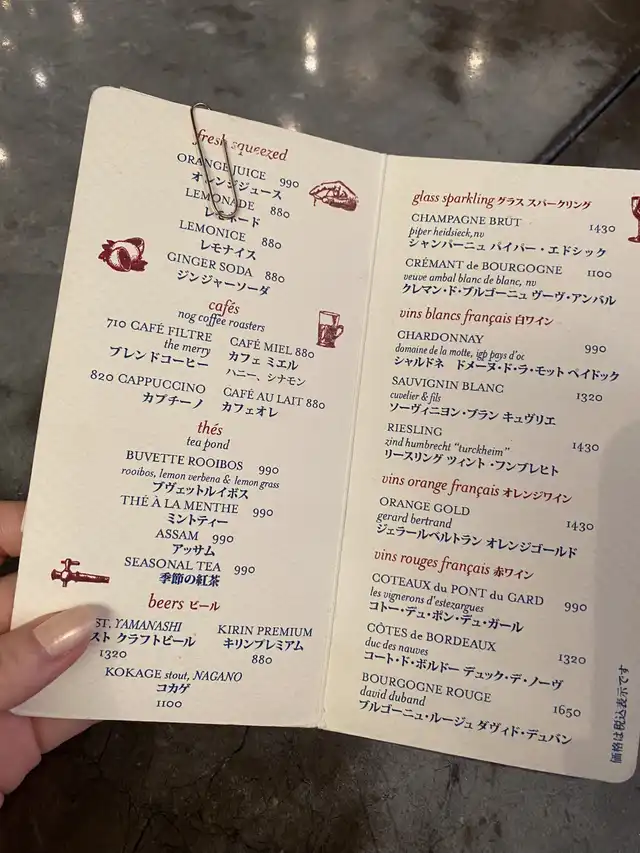 fresh squeezed
ORANGE JUICE 990
オレンジジュース
LEMONADE 880
レモネード
LEMONICE 880
レモナイス
GINGER SODA 880
ジンジャーソーダ
cafés
nog coffee roasters
710 CAFÉ FILTRE
the merry
ブレンドコーヒー
CAFÉ MIEL 880
カフェ ミエル
ハニー、シナモン
820 CAPPUCCINO
カプチーノ
CAFÉ AU LAIT 880
カフェオレ
thés
tea pond
BUVETTE ROOIBOS 990
rooibos, lemon verbena & lemon grass
ブヴェットルイボス
THÉ À LA MENTHE 990
ミントティー
ASSAM 990
アッサム
SEASONAL TEA 990
季節の紅茶
beers ビール
ST. YAMANASHI
スト クラフトビール
1320
KIRIN PREMIUM
キリンプレミアム
880
KOKAGE stout, NAGANO
コカゲ
1100
glass sparkling グラス スパークリング
CHAMPAGNE BRUT 1430
piper heidsieck, nv
シャンパーニュ パイパー・エドシック
CRÉMANT de BOURGOGNE 1100
veuve ambal blanc de blanc, nv
クレマン・ド・ブルゴーニュ ヴーヴ・アンバル
vins blancs français 白ワイン
CHARDONNAY 990
domaine de la motte, igp pays d'oc
シャルドネ ドメーヌ・ド・ラ・モット ペイドック
SAUVIGNON BLANC 1320
cuvelier & fils
ソーヴィニヨン・ブラン キュヴリエ
RIESLING 1430
zind humbrecht "turckheim"
リースリング ツィント・フンブレヒト
vins orange français オレンジワイン
ORANGE GOLD 1430
gerard bertrand
ジェラールベルトラン オレンジゴールド
vins rouges français 赤ワイン
COTEAUX du PONT du GARD 990
les vignerons d'estezargues
コトー・デュ・ポン・デュ・ガール
CÔTES de BORDEAUX 1320
duc des nauves
コート・ド・ボルドー デュック・デ・ノーヴ
BOURGOGNE ROUGE 1650
david duband
ブルゴーニュ・ルージュ ダヴィド・デュバン
価格は税込表示です